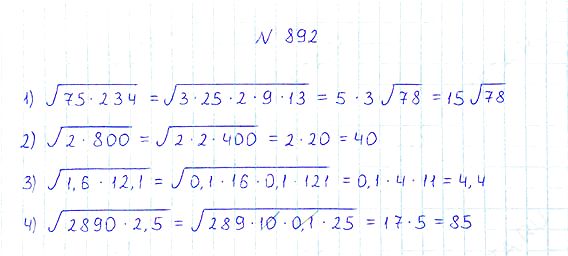 № 892
1) √75·234 = √3·25·2·9·13 = 5·3√78 = 15√78
2) √2·800 = √2·2·400 = 2·20 = 40
3) √1,6·12,1 = √0,1·16·0,1·121 = 0,1·4·11 = 4,4
4) √2890·2,5 = √289·10·0,1·25 = 17·5 = 85